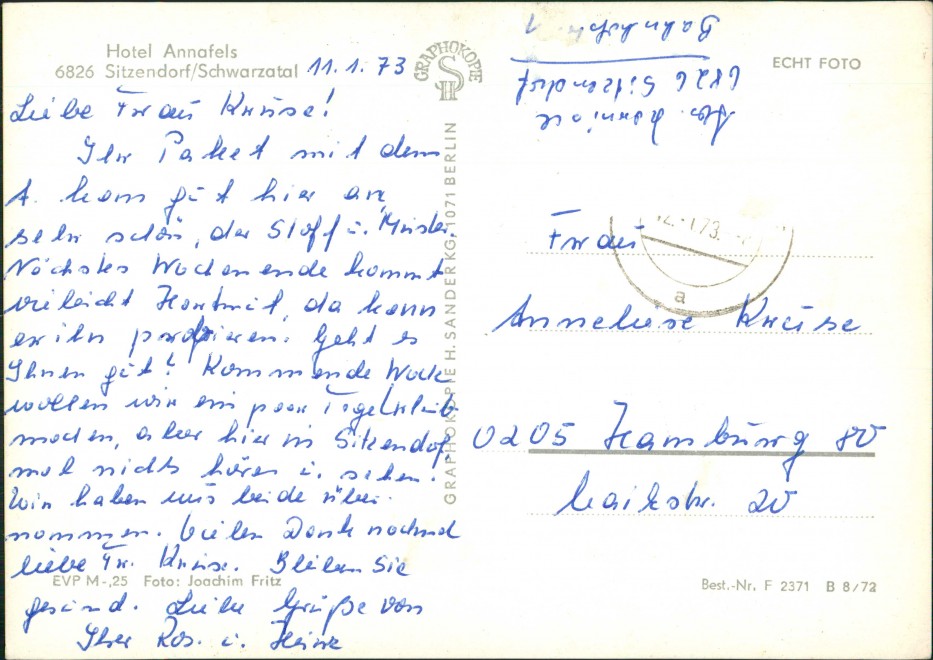 Hotel Annafels
6826 Sitzendorf/Schwarzatal
11.1.73
Liebe Frau Kruse!
Ihr Paket mit dem
A. kam gut hier an,
sehr schön, der Stoff u. Muster.
Nächstes Wochenende kommt
vieleicht Hartmut, da kann
er ihn probieren. Geht es
Ihnen gut? Kommende Woche
wollen wir ein paar Tage Urlaub
machen, aber hier in Sitzendorf,
mal nichts hören u. sehen.
Wir haben uns beide über-
nommen. Vielen Dank nochmal
liebe Fr. Kruse. Bleiben Sie
gesund. Liebe Grüße von
Ihrer Ros. u. Heinz
EVP M-,25 Foto: Joachim Fritz
GRAPHOKOPIE
H S
GRAPHOKOPIE H. SANDER KG · 1071 BERLIN
ECHT FOTO
6826 Sitzendorf
Bahnhofstr. 1
12.-1.73.
a
Frau
Anneliese Kruse
0205 Hamburg 80
20
Best.-Nr. F 2371 B 8/72